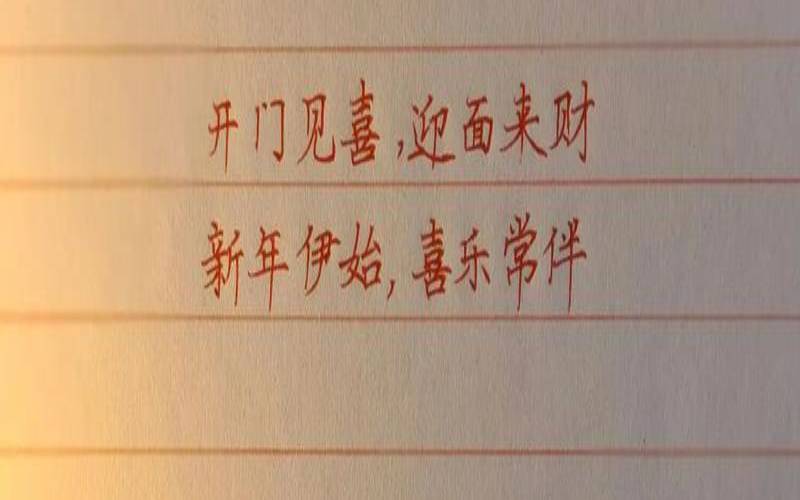 开门见喜,迎面来财
新年伊始,喜乐常伴